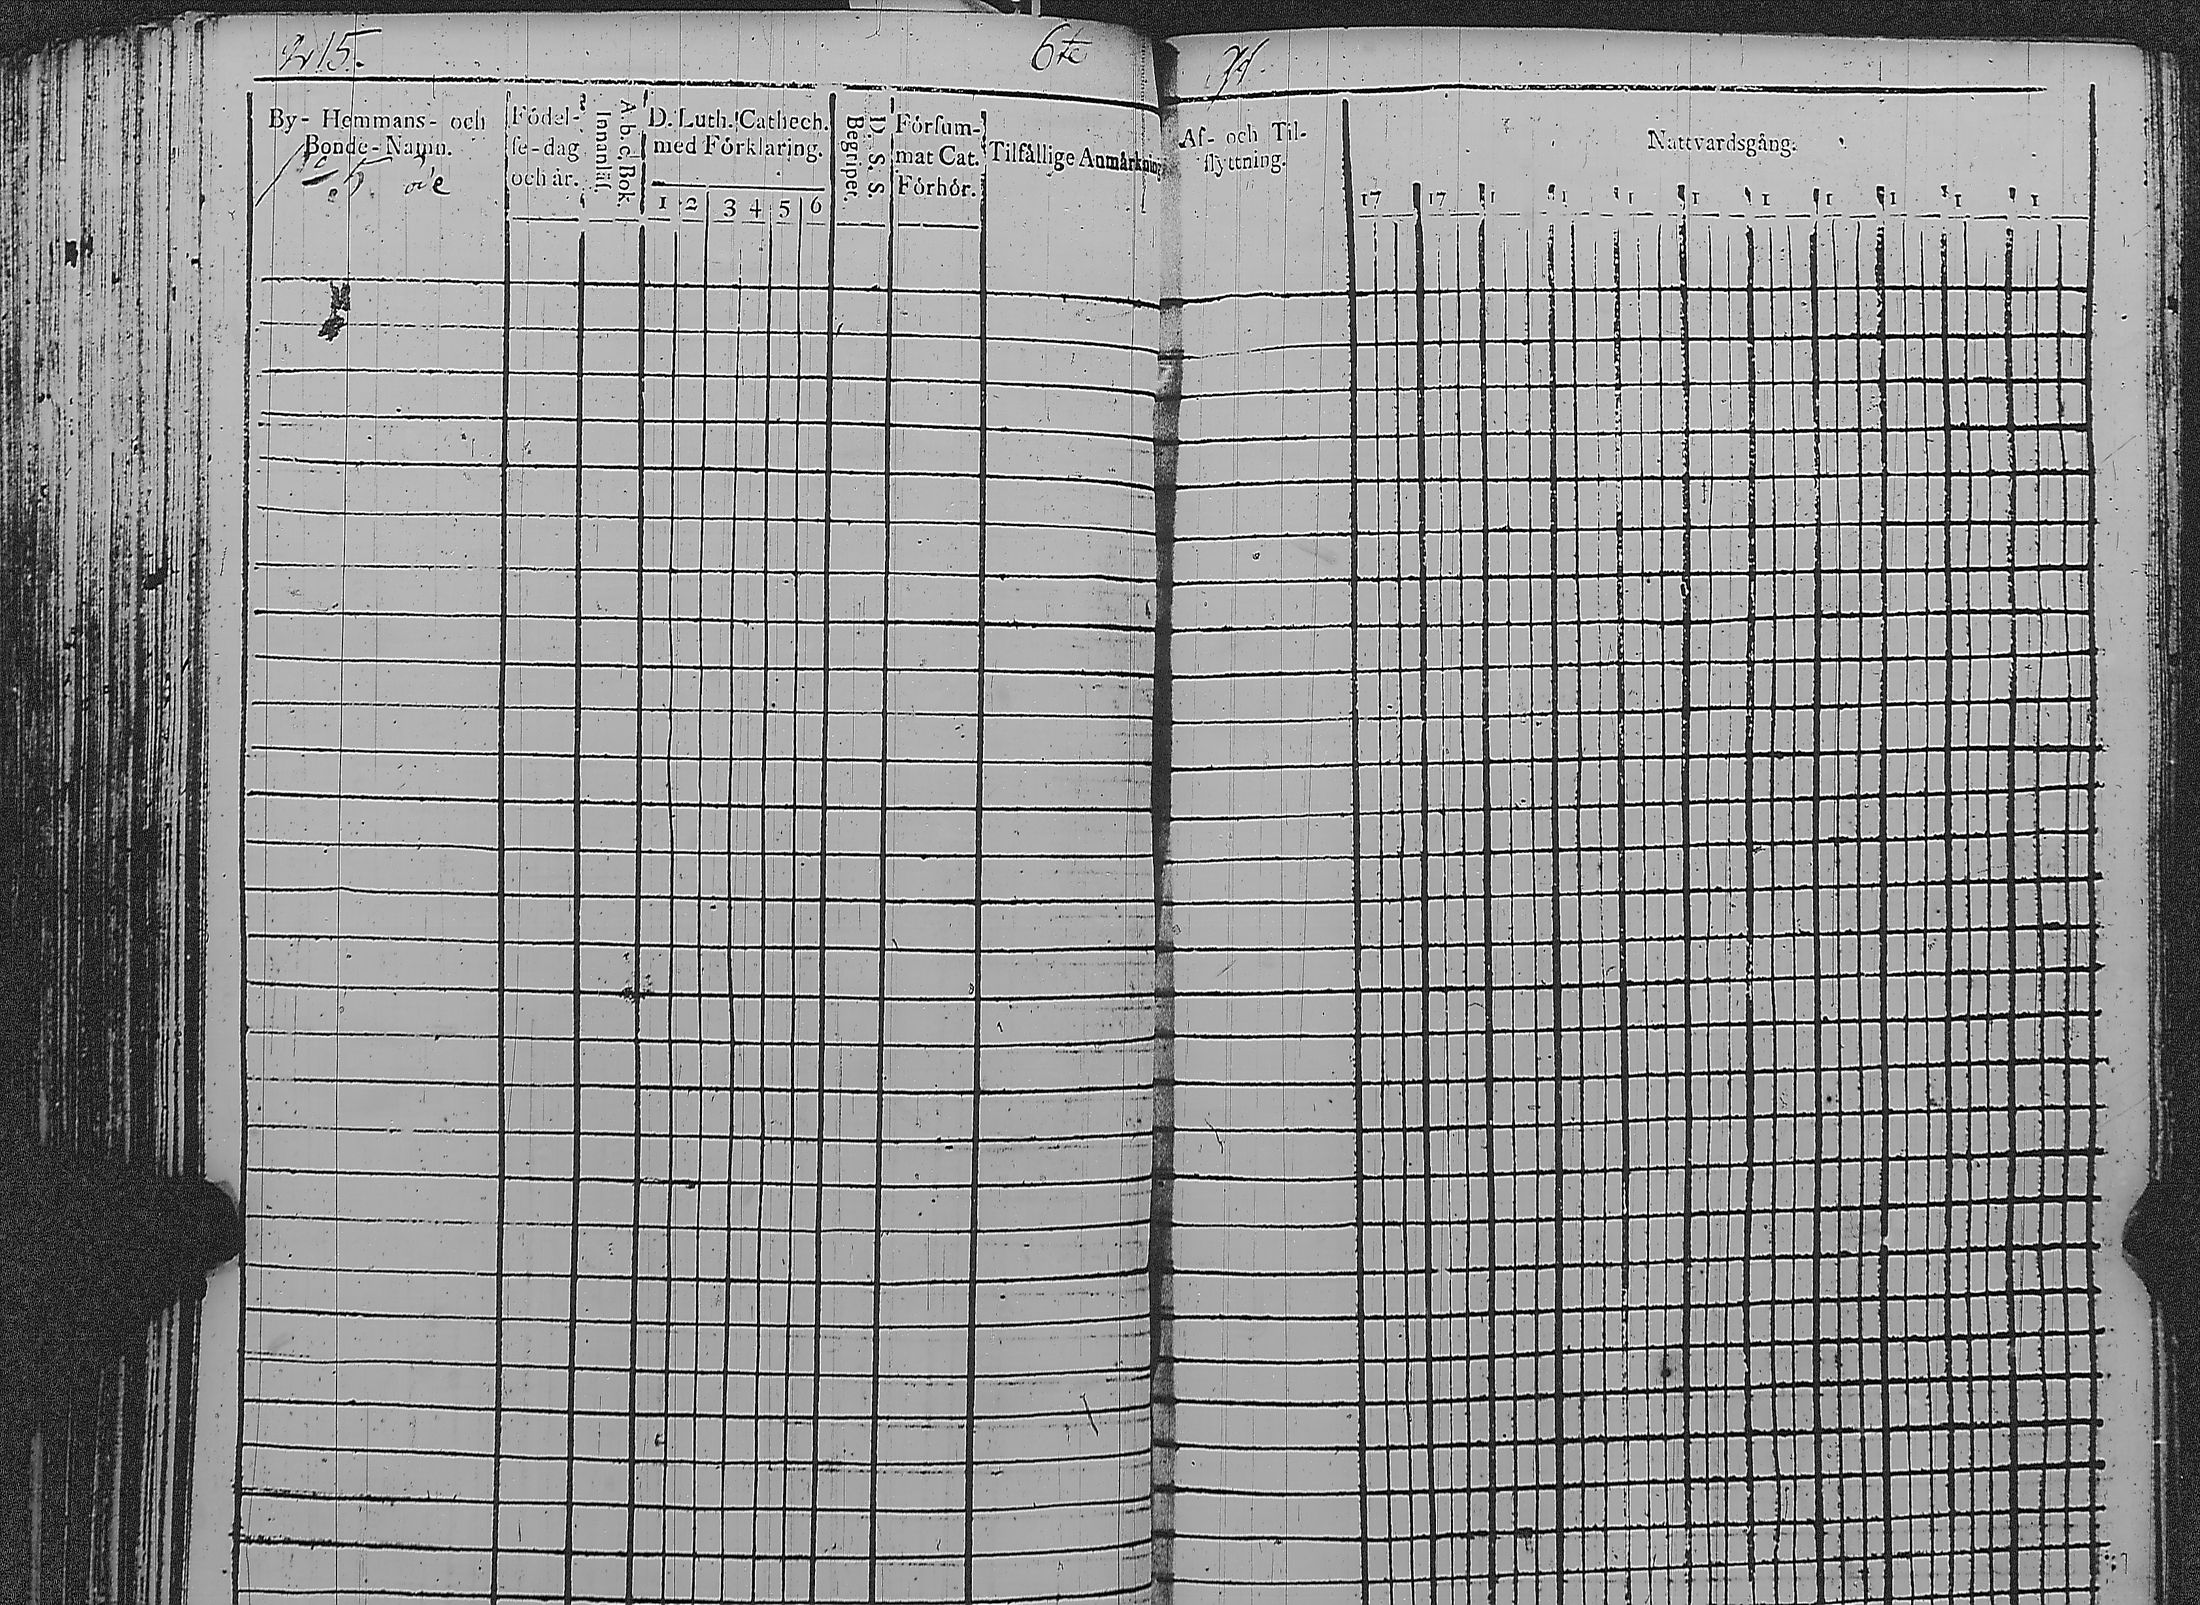 215.
6te
By- Hemmans- och
Bonde-Namn.
öde
Fódel-
se-dag
och år.
A b c Bok
Innanläs.
D. Luth. Cathech.
med Fórklaring.
1 2 3 4 5 6
D. S. S.
Begriper.
Fórsum-
mat Cat.
Fórhór.
Tilfállige Anmårkning
Af- och Til-
flyttning.
Nattvardsgång.
17 17 1 1 1 1 1 1 1 1 1